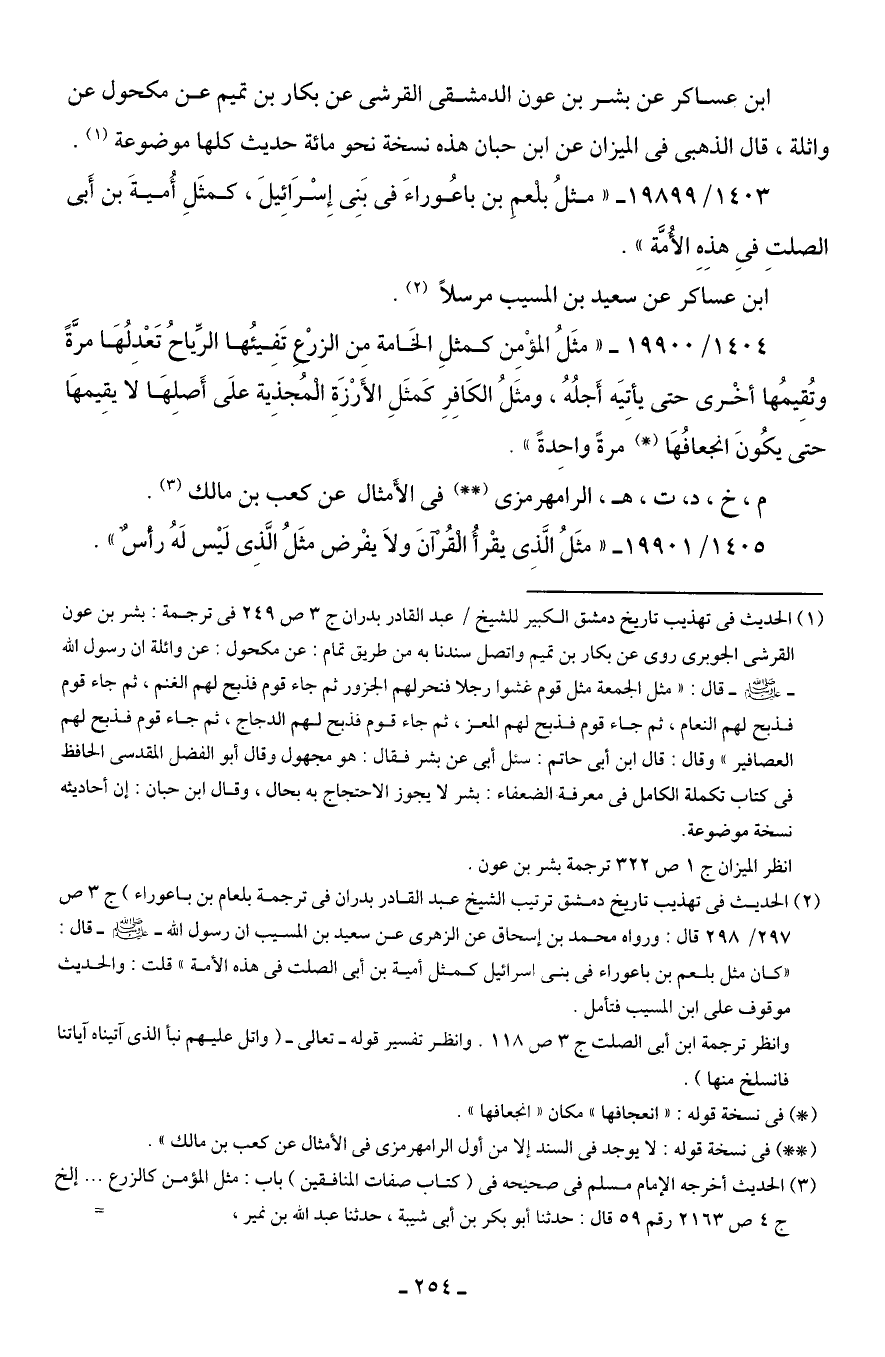 ابن عساكر عن بشر بن عون الدمشقى القرشى عن بكار بن تميم عن مكحول عن
واثلة ، قال الذهبى فى الميزان عن ابن حبان هذه نسخة نحو مائة حديث كلها موضوعة (١) .
١٤٠٣/ ١٩٨٩٩ـ « مثلُ بلْعمِ بن باعُوراءَ فى بَنِى إسْرَائِيلَ ، كمثَلِ أُميةَ بن أَبى
الصلتِ فِى هذهِ الأُمَّة » .
ابن عساكر عن سعيد بن المسيب مرسلاً (٢) .
١٤٠٤/ ١٩٩٠٠ ـ « مثَلُ المؤْمن كمثلِ الخَامة مِن الزرْعِ تَفيئُها الرِّياحُ تَعْدلُهَا مرةً
وتُقِيمُها أخْرى حتى يأتيَه أجلُهُ ، ومثَلُ الكَافرِ كَمثَلِ الأرْزَةِ الْمُجذية علَى أصلهَا لا يقيمهَا
حتى يكُونَ انجعافُهَا (*) مرةً واحدةً » .
م ، خ ، د، ت ، هـ ، الرامهرمزى (**) فى الأمثال عن كعب بن مالك (٣) .
١٤٠٥/ ١٩٩٠١ـ « مثَلُ الَّذِى يقْرأُ الْقُرآنَ ولاَ يفْرض مثلُ الَّذِى لَيْس لَهُ رأسٌ » .
(١) الحديث فى تهذيب تاريخ دمشق الكبير للشيخ / عبد القادر بدران ج ٣ ص ٢٤٩ فى ترجمة : بشر بن عون
القرشى الجوبرى روى عن بكار بن تميم واتصل سندنا به من طريق تمام : عن مكحول : عن واثلة ان رسول الله
ـ ﷺ ـ قال : « مثل الجمعة مثل قوم غشوا رجلا فنحر لهم الجزور ثم جاء قوم فذبح لهم الغنم ، ثم جاء قوم
فذبح لهم النعام ، ثم جاء قوم فذبح لهم المعز ، ثم جاء قوم فذبح لهم الدجاج ، ثم جاء قوم فذبح لهم
العصافير » وقال : قال ابن أبى حاتم : سئل أبى عن بشر فقال : هو مجهول وقال أبو الفضل المقدسى الحافظ
فى كتاب تكملة الكامل فى معرفة الضعفاء : بشر لا يجوز الاحتجاج به بحال ، وقال ابن حبان : إن أحاديثه
نسخة موضوعة.
انظر الميزان ج ١ ص ٣٢٢ ترجمة بشر بن عون .
(٢) الحديث فى تهذيب تاريخ دمشق ترتيب الشيخ عبد القادر بدران فى ترجمة بلعام بن باعوراء ) ج ٣ ص
٢٩٧/ ٢٩٨ قال : ورواه محمد بن إسحاق عن الزهرى عن سعيد بن المسيب ان رسول الله ـ ﷺ ـ قال :
«كان مثل بلعم بن باعوراء فى بنى اسرائيل كمثل أمية بن أبى الصلت فى هذه الأمة » قلت : والحديث
موقوف على ابن المسيب فتأمل .
وانظر ترجمة ابن أبى الصلت ج ٣ ص ١١٨ . وانظر تفسير قوله ـ تعالى ـ ( واتل عليهم نبأ الذى آتيناه آياتنا
فانسلخ منها ) .
(*) فى نسخة قوله : « انعجافها » مكان « انجعافها » .
(**) فى نسخة قوله : لا يوجد فى السند إلا من أول الرامهرمزى فى الأمثال عن كعب بن مالك » .
(٣) الحديث أخرجه الإمام مسلم فى صحيحه فى ( كتاب صفات المنافقين ) باب : مثل المؤمن كالزرع ... إلخ
ج ٤ ص ٢١٦٣ رقم ٥٩ قال : حدثنا أبو بكر بن أبى شيبة ، حدثنا عبد الله بن نمير ، =
ـ ٢٥٤ ـ